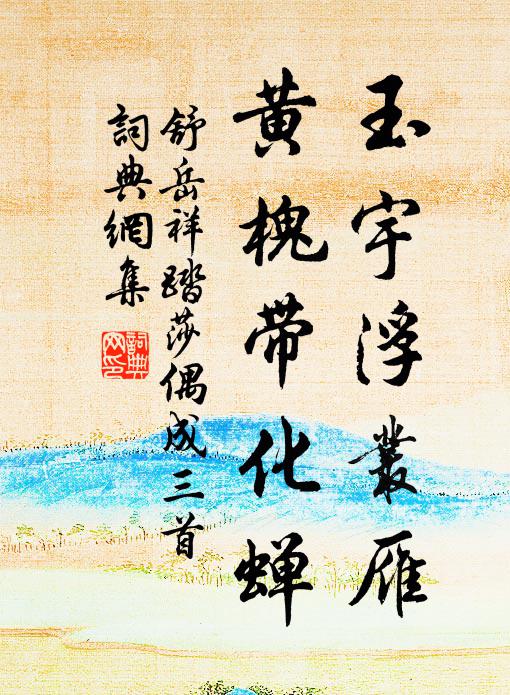 玉宇浮叢雁
黄槐带化蝉
舒岳祥踏莎偶成三首
詞典網集
詞典网印